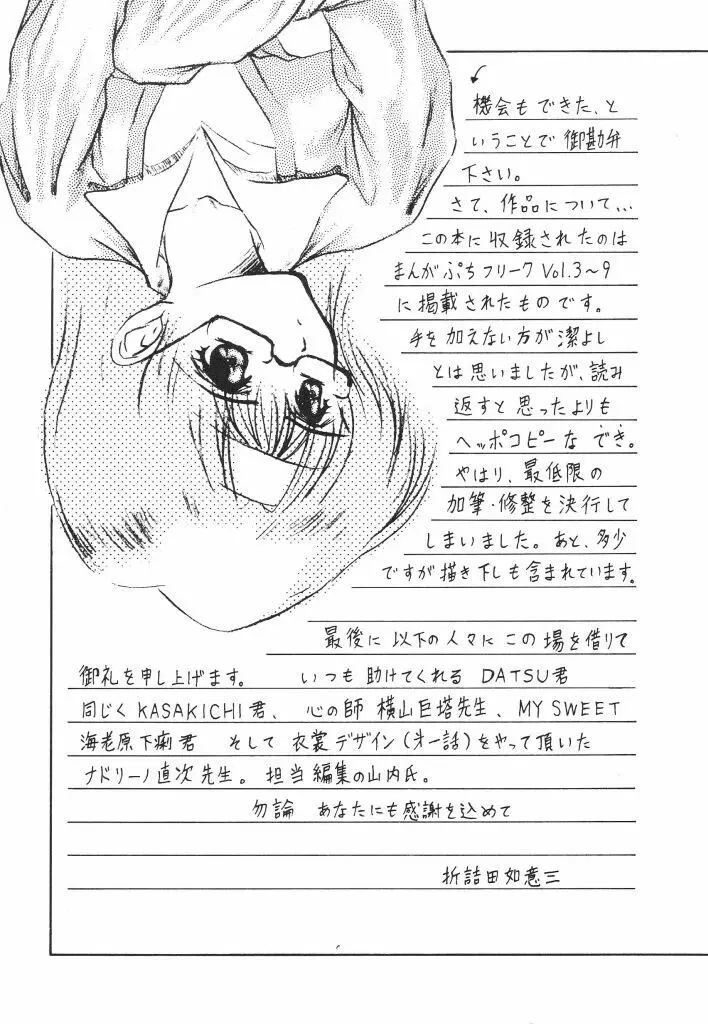 機会もできた、と
いうことで御勘弁
下さい。
さて、作品について...
この本に収録されたのは
まんがぷちフリーク Vol.3〜9
に掲載されたものです。
手を加えない方が潔よし
とは思いましたが、読み
返すと思ったよりも
ヘッポコピーなでき。
やはり、最低限の
加筆・修整を決行して
しまいました。あと、多少
ですが描き下しも含まれています。
最後に以下の人々にこの場を借りて
御礼を申し上げます。 いつも助けてくれる DATSU君
同じくKASAKICHI君、心の師 横山巨塔先生、MY SWEET
海老原下痢君 そして 衣裳デザイン(才一話)をやって頂いた
ナドリーノ直次先生。担当編集の山内氏。
勿論 あなたにも感謝を込めて
折詰田如意三